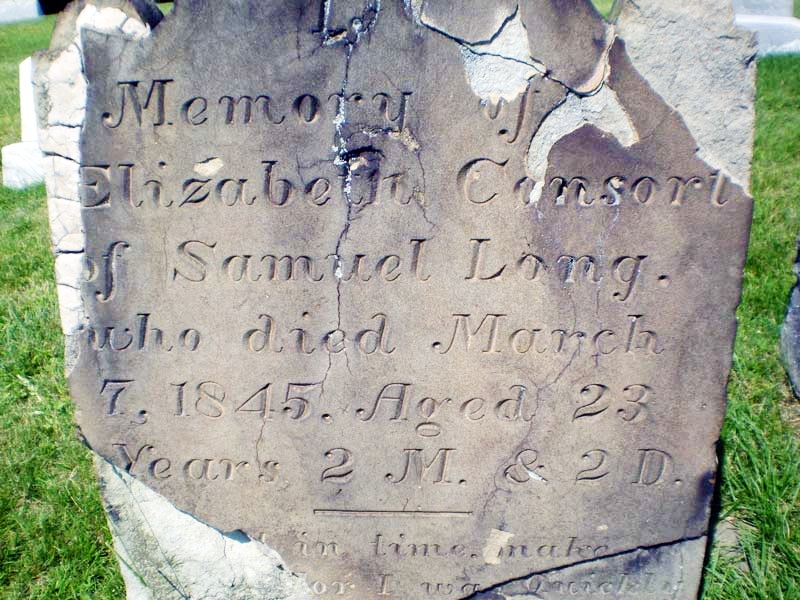 Memory of
Elizabeth Consort
of Samuel Long.
who died March
7, 1845. Aged 23
Years 2 M. & 2 D.
in time, make
for I was quickly